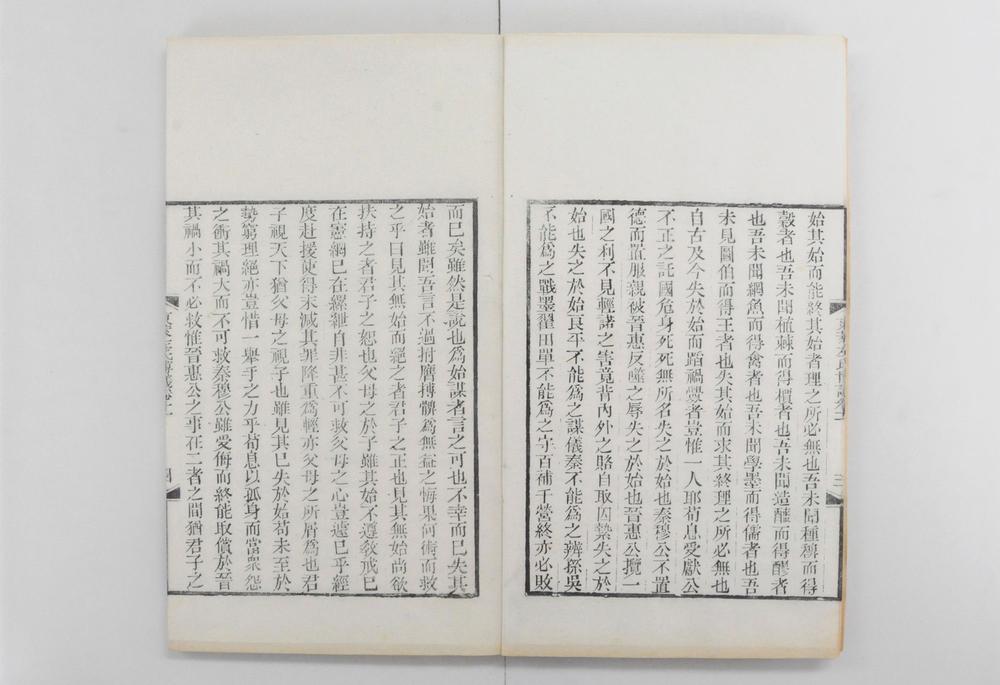 始其始而能終其始者理之所必無也吾未聞種稗而得
穀者也吾未聞植棘而得檟者也吾未聞造醯而得醪者
也吾未聞網魚而得禽者也吾未聞學墨而得儒者也吾
未見圖伯而得王者也失其始而求其終理之所必無也
自古及今失於始而蹈禍釁者豈惟一人耶荀息受獻公
不正之託國危身死死無所名失之於始也秦穆公不置
德而置服親被晉惠反噬之辱失之於始也晉惠公攬一
國之利不見輕諾之害竟背內外之賂自取囚縶失之於
始也失之於始良平不能為之謀儀秦不能為之辨孫吳
不能為之戰墨翟田單不能為之守百補千營終亦必敗
三
而已矣雖然是說也為始謀者言之可也不幸而已失其
始者雖聞吾言不過拊膺搏髀為無益之悔果何術而救
之乎曰見其無始而絕之者君子之正也見其無始尚欲
扶持之者君子之恕也父母之於子雖其始不遵敎戒已
在憲綱已在縲紲自非甚不可救父母之心豈遽已乎經
度赴援使得末減其罪降重為輕亦父母之所屑為也君
子視天下猶父母之視子也雖見其已失於始苟未至於
勢窮理絕亦豈惜一舉手之力乎荀息以孤身而當衆怨
之衝其禍大而不可救秦穆公雖受侮而終能取償於晉
其禍小而不必救惟晉惠公之事在二者之間猶君子之
四